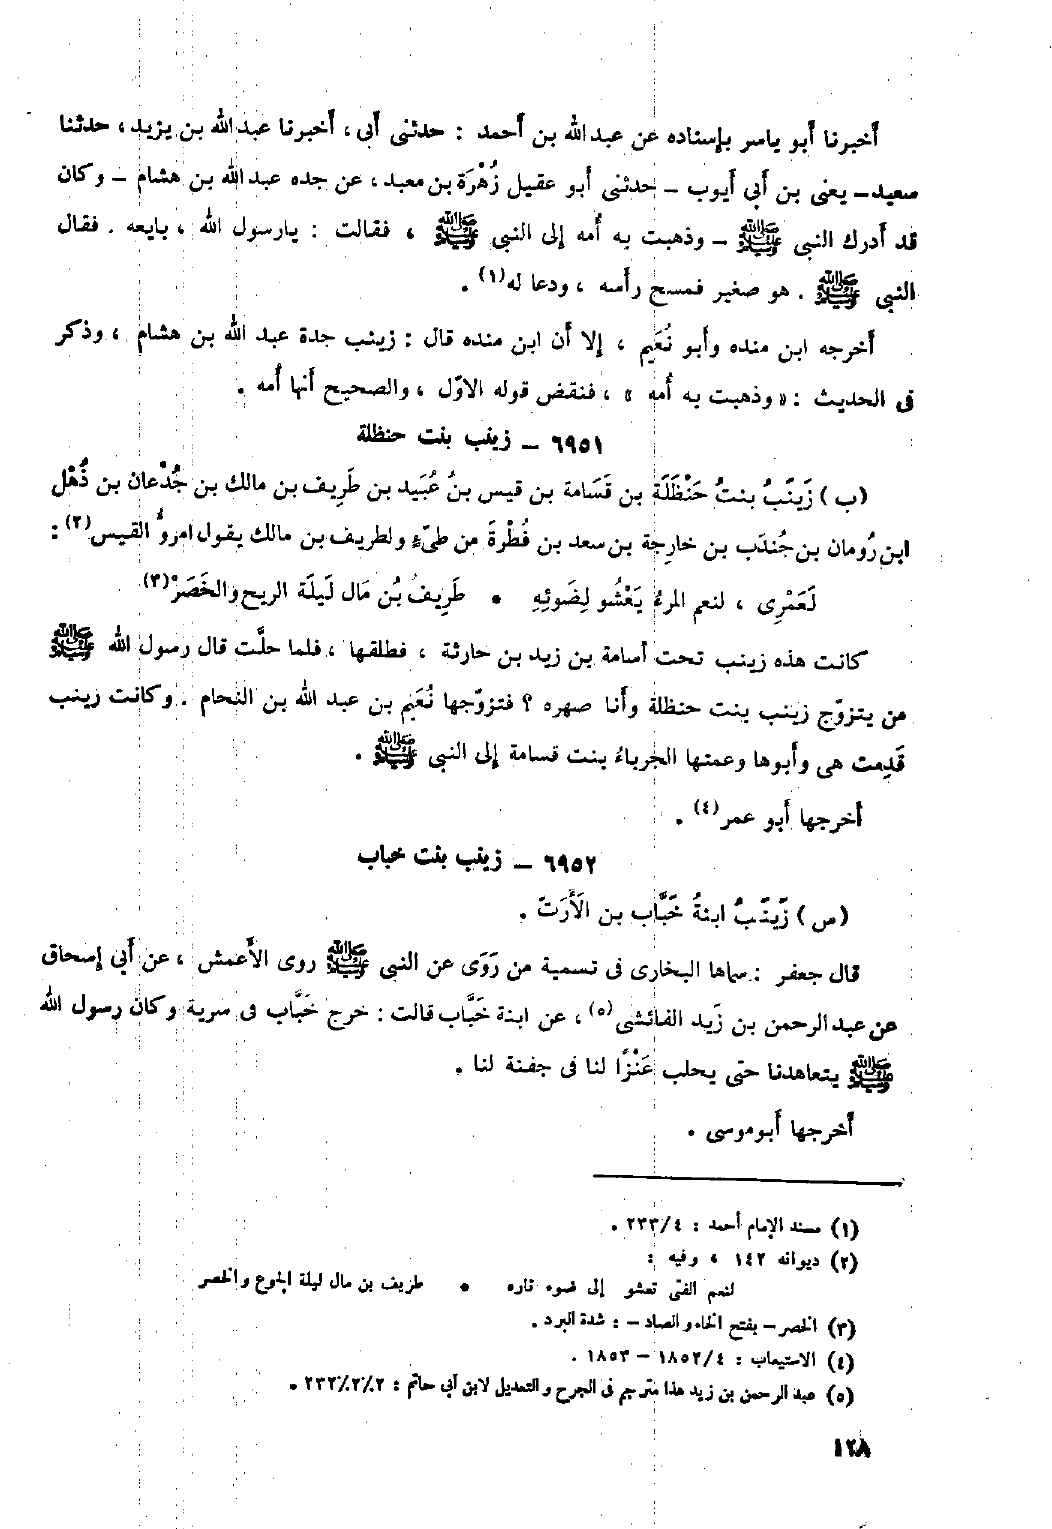 أخبرنا أبو ياسر بإسناده عن عبد الله بن أحمد : حدثنى أبى ، أخبرنا عبد الله بن يزيد ، حدثنا
سعيد ــ يعنى بن أبى أيوب ــ حدثنى أبو عقيل زُهْرَة بن معبد ، عن جده عبد الله بن هشام ــ وكان
قد أدرك النبى ﷺ ــ وذهبت به أُمه إلى النبى ﷺ ، فقالت : يارسول الله ، بايعه . فقال
النبى ﷺ . هو صغير فمسح رأسه ، ودعا له(١) .
أخرجه ابن منده وأبو نُعَيم ، إلا أن ابن منده قال : زينب جدة عبد الله بن هشام ، وذكر
فى الحديث : « وذهبت به أُمه » ، فنقض قوله الاوّل ، والصحيح أنها أُمه .
٦٩٥١ ــ زينب بنت حنظلة
(ب) زَيْنَبُ بنتُ حَنْظَلَة بن قَسَامة بن قيس بنُ عُبَيد بن طَرِيف بن مالك بن جُدْعان بن ذُهْل
ابن رُومان بن جُندَب بن خارجِة بن سعد بن فُطْرةَ من طىّءٍ ولطريف بن مالك يقول امروُّ القيس(٢) :
لَعَمْرِى ، لنعم المرءُ يَعْشُو لِضَوئِهِ • طَرِيفُ بْن مَال لَيلَة الريح والخَصَرْ(٣)
كانت هذه زينب تحت أسامة بن زيد بن حارثة ، فطلقها ، فلما حلَّت قال رسول الله ﷺ
من يتزوّج زينب بنت حنظلة وأنا صهره ؟ فتزوّجها نُعَيم بن عبد الله بن النحام . وكانت زينب
قَدِمت هى وأبوها وعمتها الجرباءُ بنت قسامة إلى النبى ﷺ .
أخرجها أبو عمر(٤) .
٦٩٥٢ ــ زينب بنت خباب
(س) زَيْنَبُ ابنةُ خَبَّاب بن الأَرَتّ .
قال جعفر : سماها البخارى فى تسمية من رَوَى عن النبى ﷺ روى الأعمش ، عن أبى إسحاق
عن عبد الرحمن بن زَيد الفائشى(٥) ، عن ابنة خَبَّاب قالت : خرج خَبَّاب فى سرية وكان رسول الله
ﷺ يتعاهدنا حتى يحلب عَنْزًا لنا فى جفنة لنا .
أخرجها أبوموسى .
(١) مسند الإمام أحمد : ٢٣٣/٤ .
(٢) ديوانه ١٤٢ ، وفيه :
لنعم الفتى تعشو إلى ضوء ناره • طريف بن مال ليلة الجوع والخصر
(٣) الخصر ــ بفتح الخاء والصاد ــ : شدة البرد .
(٤) الاستيعاب : ١٨٥٢/٤ ــ ١٨٥٣ .
(٥) عبد الرحمن بن زيد هذا مترجم فى الجرح والتعديل لابن أبى حاتم : ٢٣٢/٢/٢ .
١٢٨